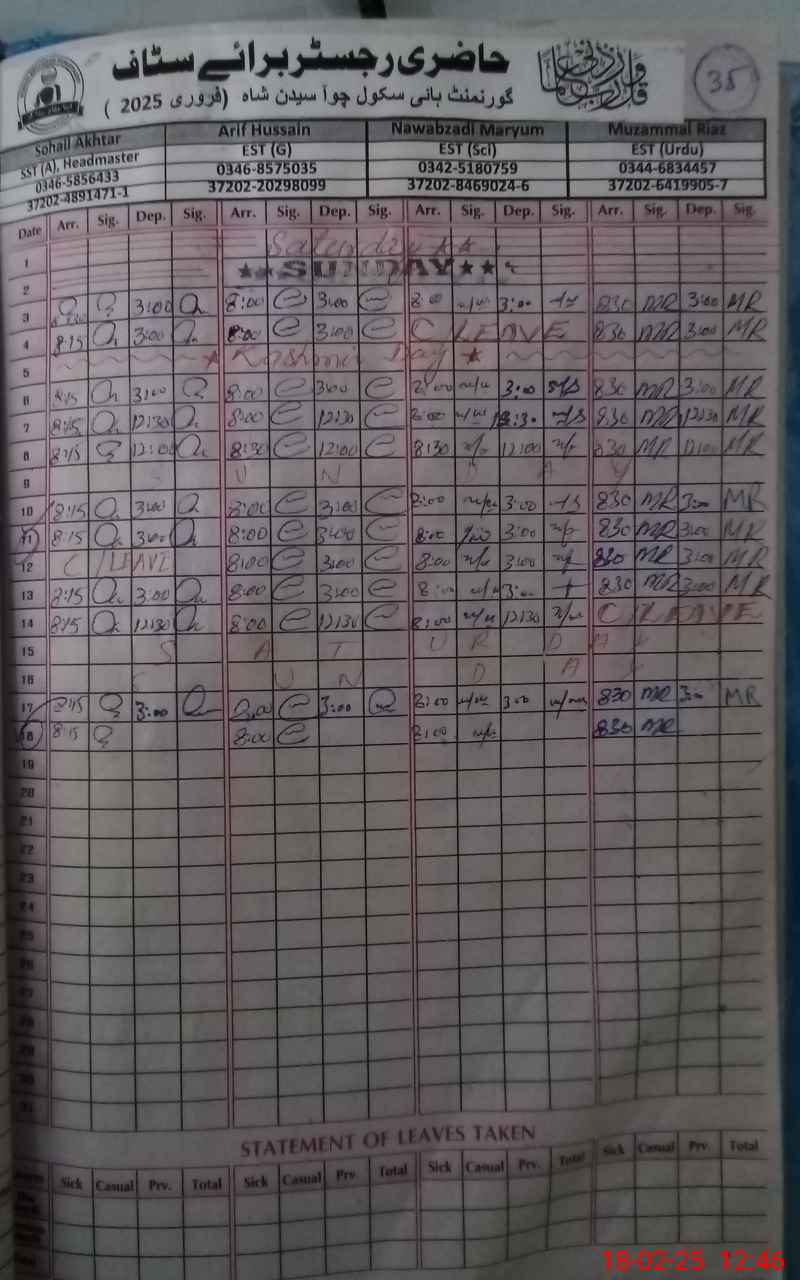 حاضری رجسٹر برائے سٹاف
35
گورنمنٹ ہائی سکول چوآ سیدن شاہ (فروری 2025)
Sohail Akhtar Arif Hussain Nawabzadi Maryum Muzammal Riaz
SST (A), Headmaster EST (G) EST (Sci) EST (Urdu)
0346-5856433 0346-8575035 0342-5180759 0344-6834457
37202-4891471-1 37202-20298099 37202-8469024-6 37202-6419905-7
Date Arr. Sig. Dep. Sig. Arr. Sig. Dep. Sig. Arr. Sig. Dep. Sig. Arr. Sig. Dep. Sig.
1 Saturday ★★
2 ★★SUNDAY★★
3 3:00 8:00 3:00 8:00 3:00 830 MR 3:00 MR
4 8:15 3:00 8:00 3:00 C LEAVE 830 MR 3:00 MR
5 ★ Kashmir Day ★
6 8:15 3:00 8:00 3:00 8:00 3:00 830 MR 3:00 MR
7 8:15 12:30 8:00 12:30 8:00 12:30 830 MR 12:30 MR
8 8:15 12:00 8:30 12:00 8:30 12:00 830 MR 12:00 MR
9 S U N D A Y
10 8:15 3:00 8:00 3:00 8:00 3:00 830 MR 3:00 MR
11 8:15 3:00 8:00 3:00 8:00 3:00 830 MR 3:00 MR
12 C/LEAVE 8:00 3:00 8:00 3:00 830 MR 3:00 MR
13 8:15 3:00 8:00 3:00 8:00 3:00 830 MR 3:00 MR
14 8:15 12:30 8:00 12:30 8:00 12:30 C/LEAVE
15 S A T U R D A Y
16 S U N D A Y
17 8:15 3:00 8:00 3:00 8:00 3:00 830 MR 3:00 MR
18 8:15 8:00 8:00 830 MR
19
20
21
22
23
24
25
26
27
28
29
30
31
STATEMENT OF LEAVES TAKEN
Sick Casual Prv. Total Sick Casual Prv. Total Sick Casual Prv. Total Sick Casual Prv. Total
18-02-25 12:46